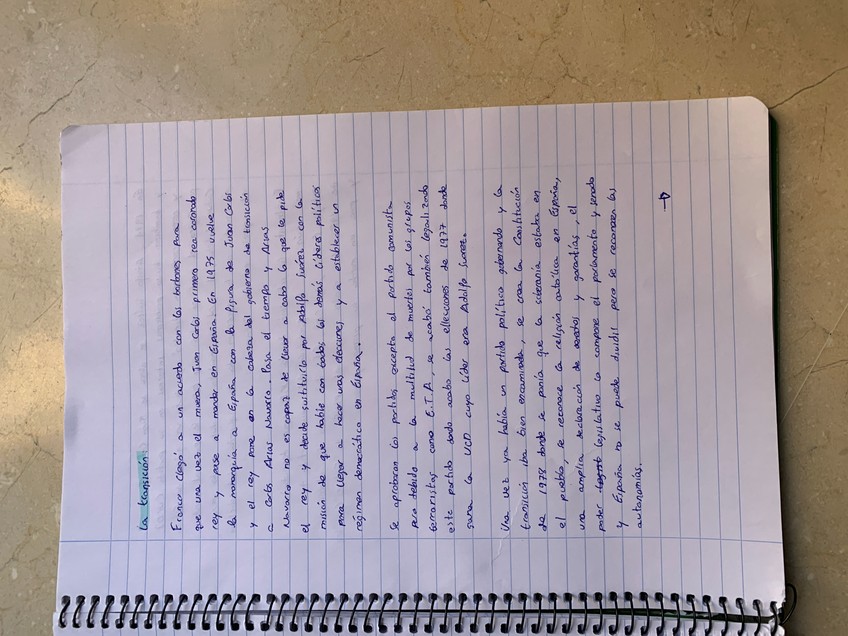 La transición
Franco llegó a un acuerdo con los borbones para
que una vez el muera, Juan Carlos primero sea colorado
rey y pase a mandar en España. En 1975 vuelve
la monarquía a España con la figura de Juan Carlos
y el rey pone en la cabeza del gobierno de transición
a Carlos Arias Navarro. Pasa el tiempo y Arias
Navarro no es capaz de llevar a cabo lo que le pide
el rey y decide sustituirlo por Adolfo Suárez con la
misión de que table con todos los demás líderes políticos
para llegar a hacer unas elecciones y a establecer un
régimen democrático en España.
Se aprobaron los partidos excepto el partido comunista
pero debido a la multitud de muertos por los grupos
terroristas como E.T.A, se acabó también legalizando
este partido dando acabo las ellecciones de 1977 donde
gana la UCD cuyo líder era Adolfo Suárez.
Una vez ya había un partido político gobernando y la
transición iba bien encaminada, se crea la Constitución
de 1978 donde se ponía que la soberanía estaba en
el pueblo, se reconoce la religión católica en España,
una amplia declaración de derechos y garantías, el
poder legislativo lo compone el parlamento y senado
y España no se puede dividir pero se reconocen las
autonomías.
→